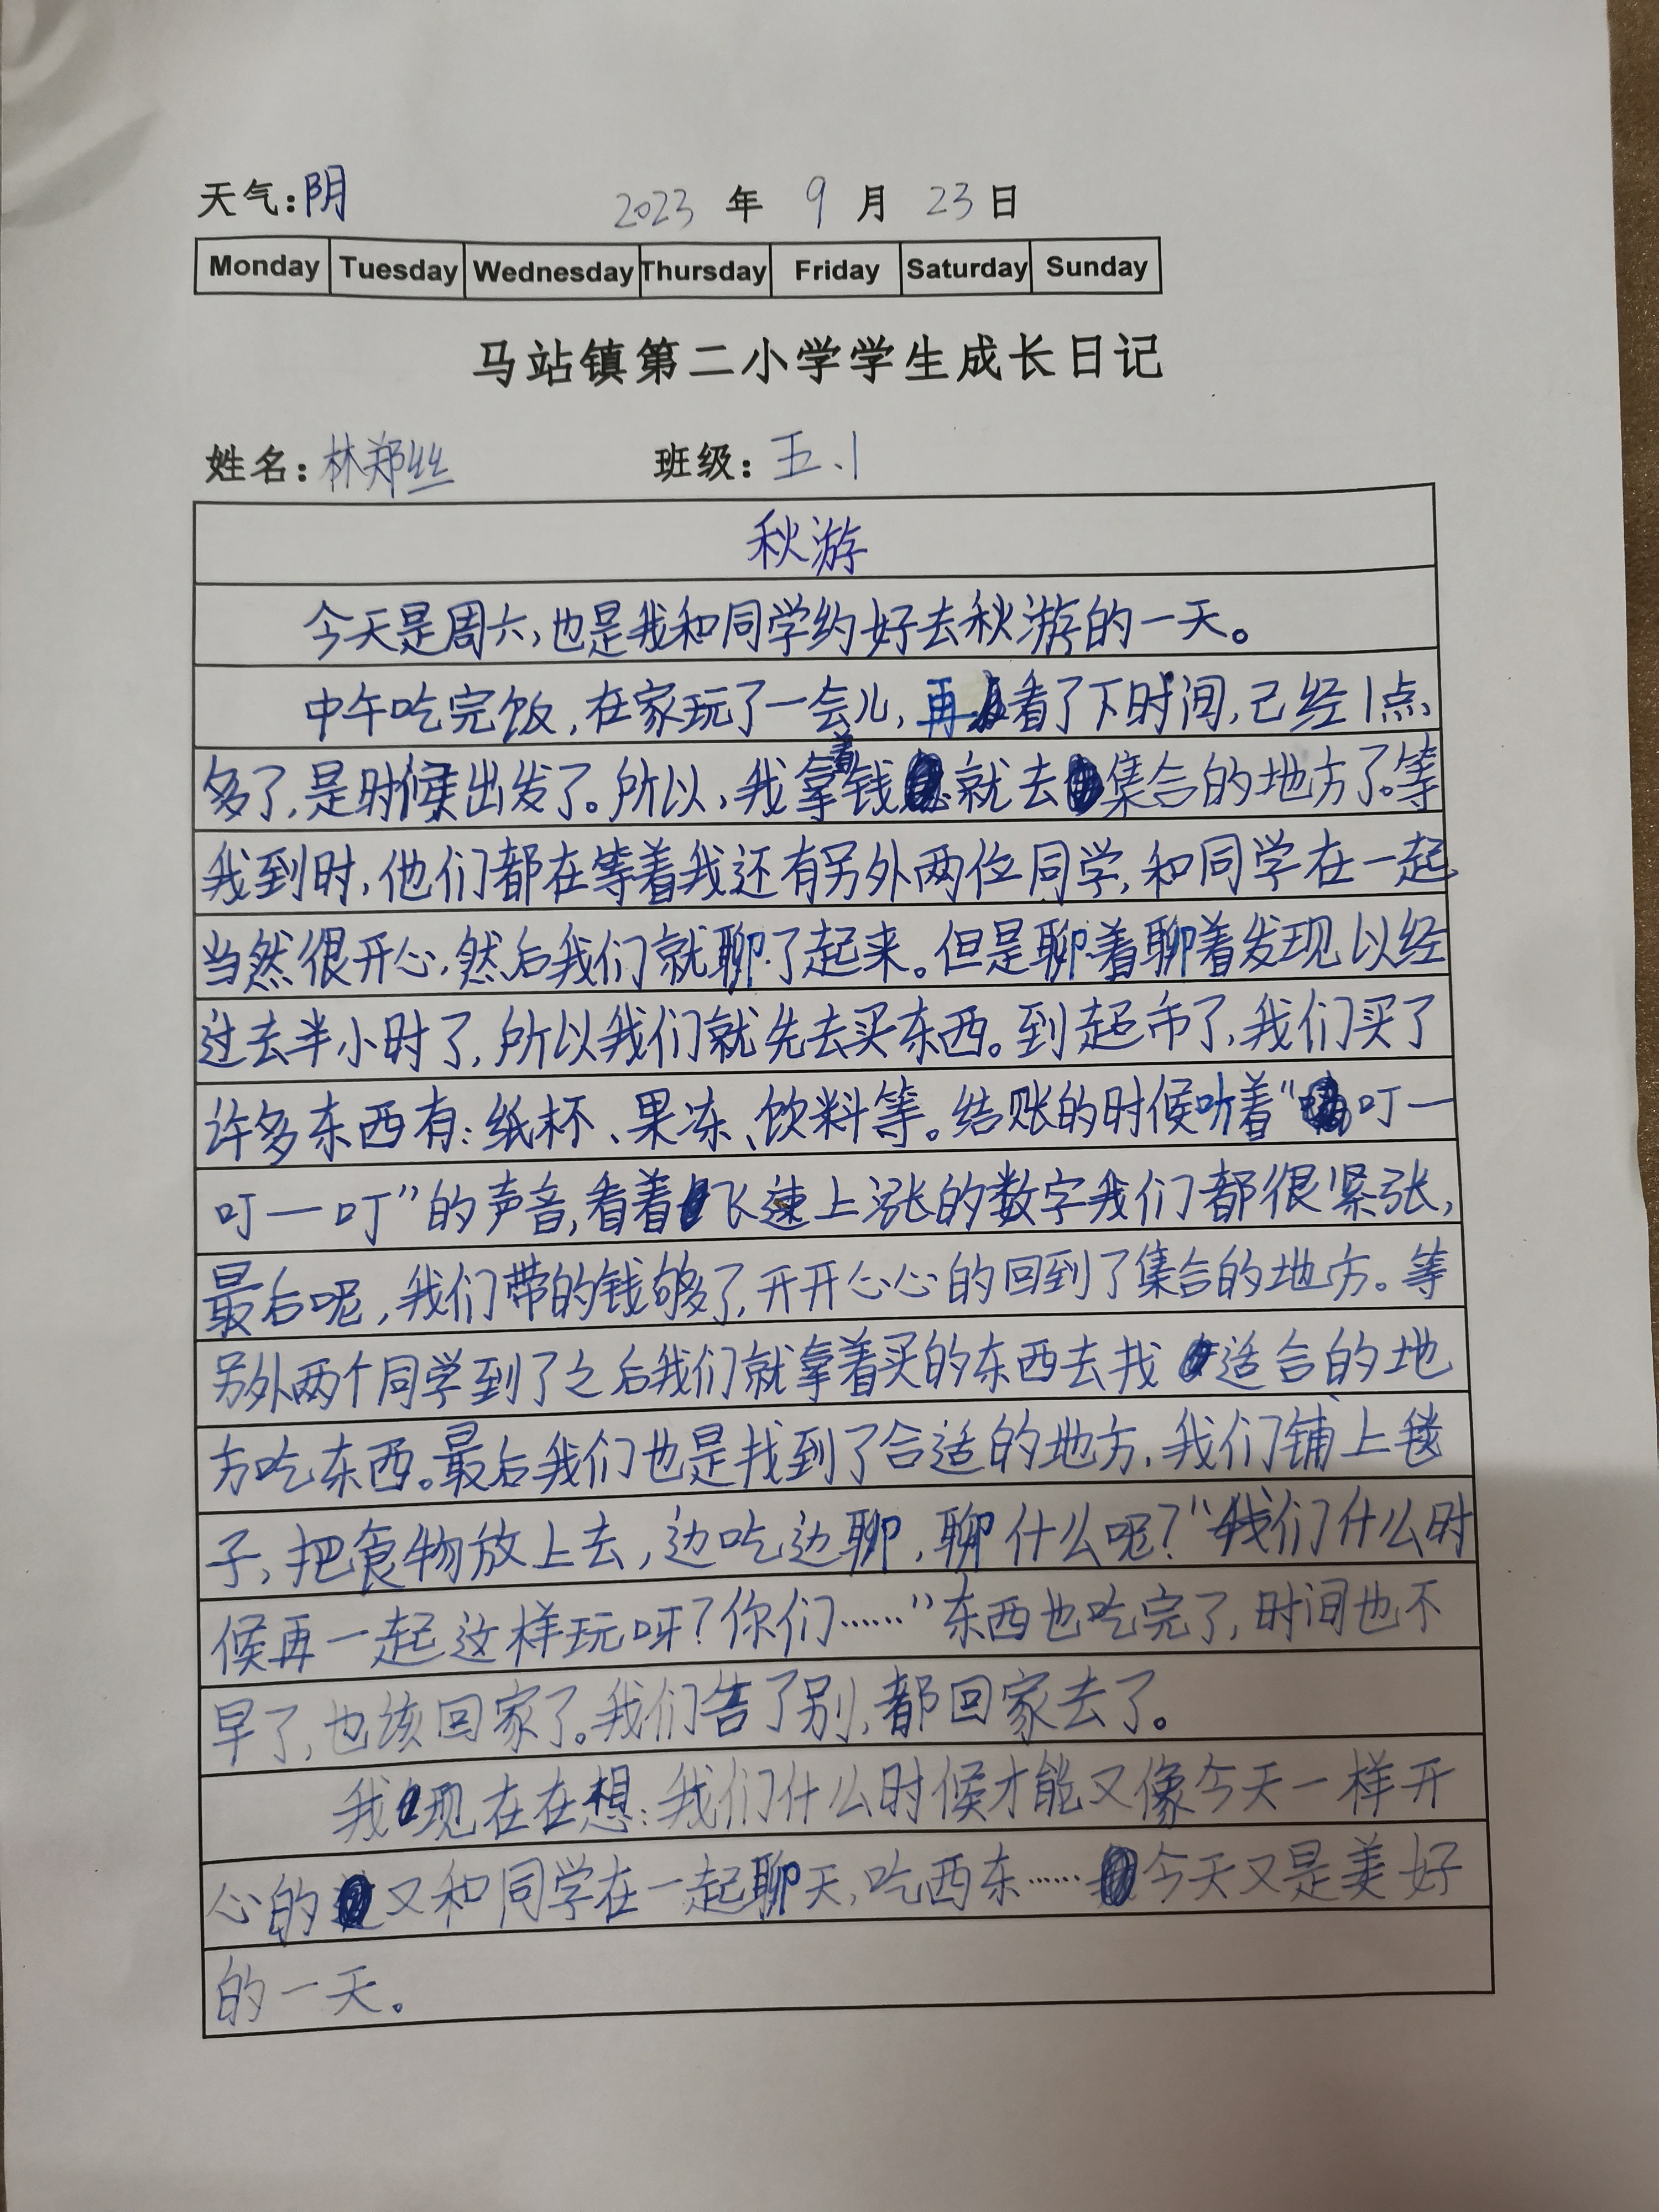 天气：阴 2023 年 9 月 23 日
Monday Tuesday Wednesday Thursday Friday Saturday Sunday
马站镇第二小学学生成长日记
姓名：林郑丝 班级：五、1
秋游
今天是周六，也是我和同学约好去秋游的一天。
中午吃完饭，在家玩了一会儿，再看了下时间，已经1点
多了，是时候出发了。所以，我拿着钱就去集合的地方了。等
我到时，他们都在等着我还有另外两位同学，和同学在一起
当然很开心，然后我们就聊了起来。但是聊着聊着发现以经
过去半小时了，所以我们就先去买东西。到超市了，我们买了
许多东西有：纸杯、果冻、饮料等。结账的时候听着“叮一
叮一叮”的声音，看着飞速上涨的数字我们都很紧张，
最后呢，我们带的钱够了，开开心心的回到了集合的地方。等
另外两个同学到了之后我们就拿着买的东西去找适合的地
方吃东西。最后我们也是找到了合适的地方，我们铺上毯
子，把食物放上去，边吃边聊，聊什么呢？“我们什么时
候再一起这样玩呀？你们……”东西也吃完了，时间也不
早了，也该回家了。我们告了别，都回家去了。
我现在在想：我们什么时候才能又像今天一样开
心的又和同学在一起聊天，吃西东……今天又是美好
的一天。